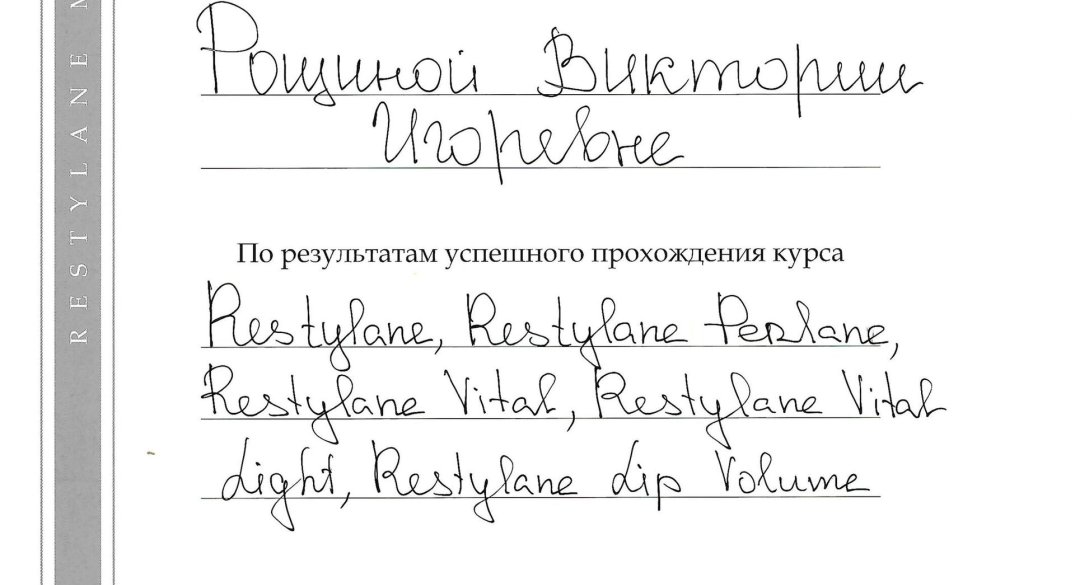 RESTYLANE M
Рощиной Виктории
Игоревне
По результатам успешного прохождения курса
Restylane, Restylane Perlane,
Restylane Vital, Restylane Vital
Light, Restylane Lip Volume